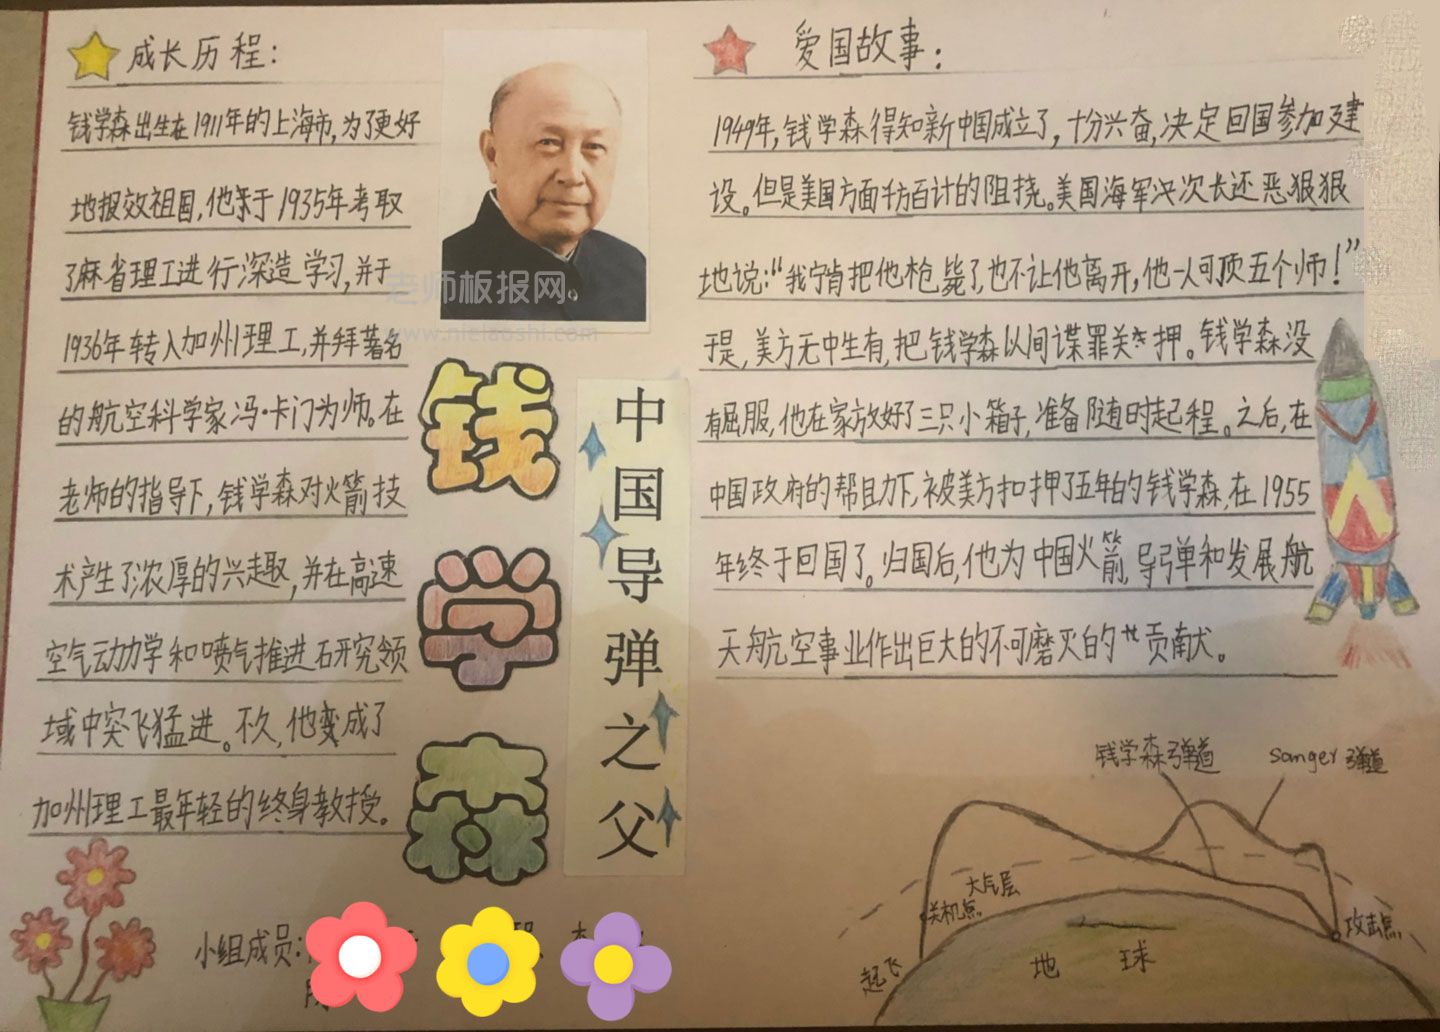 成长历程：
钱学森出生在1911年的上海市，为了更好
地报效祖国，他于1935年考取
了麻省理工进行深造学习，并于
1936年转入加州理工，并拜著名
的航空科学家冯·卡门为师。在
老师的指导下，钱学森对火箭技
术产生了浓厚的兴趣，并在高速
空气动力学和喷气推进研究领
域中突飞猛进。不久，他变成了
加州理工最年轻的终身教授。
小组成员：
老师板报网
www.nielaoshi.com
钱学森
中国导弹之父
爱国故事：
1949年，钱学森得知新中国成立了，十分兴奋，决定回国参加建
设。但是美国方面千方百计的阻挠。美国海军次长还恶狠狠
地说：“我宁肯把他枪毙了也不让他离开，他一人可顶五个师！”
于是，美方无中生有，把钱学森以间谍罪关押。钱学森没
有屈服，他在家放好了三只小箱子，准备随时起程。之后，在
中国政府的帮助下，被美方扣押了五年的钱学森，在1955
年终于回国了。归国后，他为中国火箭、导弹和发展航
天航空事业作出巨大的不可磨灭的贡献。
钱学森弹道
Sanger弹道
大气层
关机点
攻击点
起飞
地球